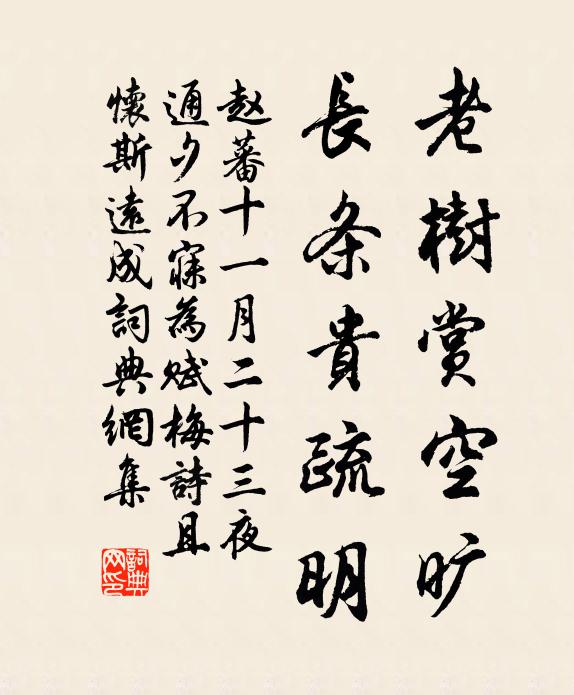 老樹賞空旷
長条貴疏明
赵蕃十一月二十三夜
通夕不寐為赋梅詩且
懷斯遠成詞典網集
詞典
网印